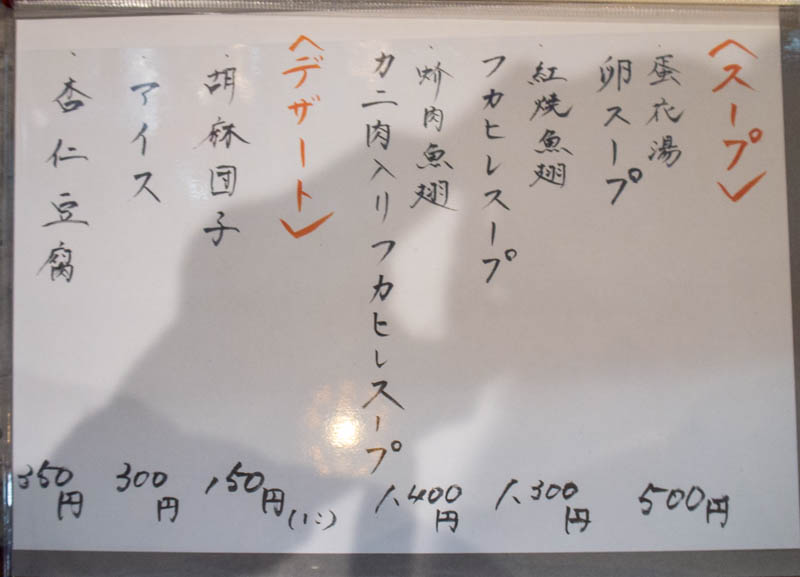 〈スープ〉
・蛋花湯
卵スープ
500円
・紅焼魚翅
フカヒレスープ
1,300円
・蚧肉魚翅
カニ肉入りフカヒレスープ
1,400円
〈デザート〉
・胡麻団子
150円(1コ)
・アイス
300円
・杏仁豆腐
350円